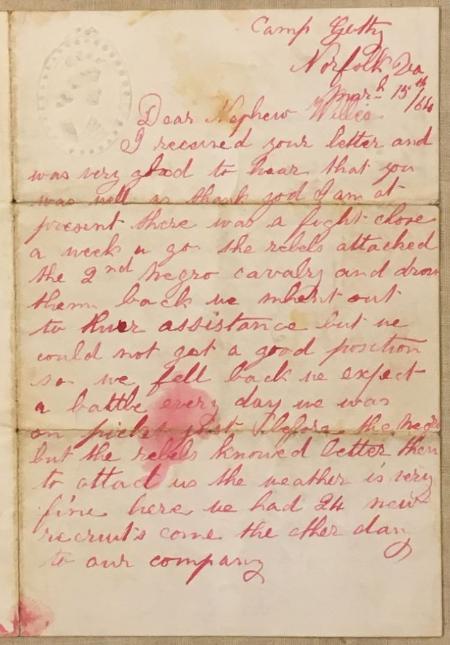 Camp Getty
Norfolk Va
March 15th /64
Dear Nephew Willie
I received your letter and
was very glad to hear that you
was well as thank god I am at
present there was a fight close
a week a go the rebels attacked
the 2nd Negro cavalry and drove
them back we whent out
to thier assistance but we
could not get a good position
so we fell back we expect
a battle every day we was
on picket just before the Negro
but the rebels knowed better then
to attact us the weather is very
fine here we had 24 new
recruits come the other day
to our company